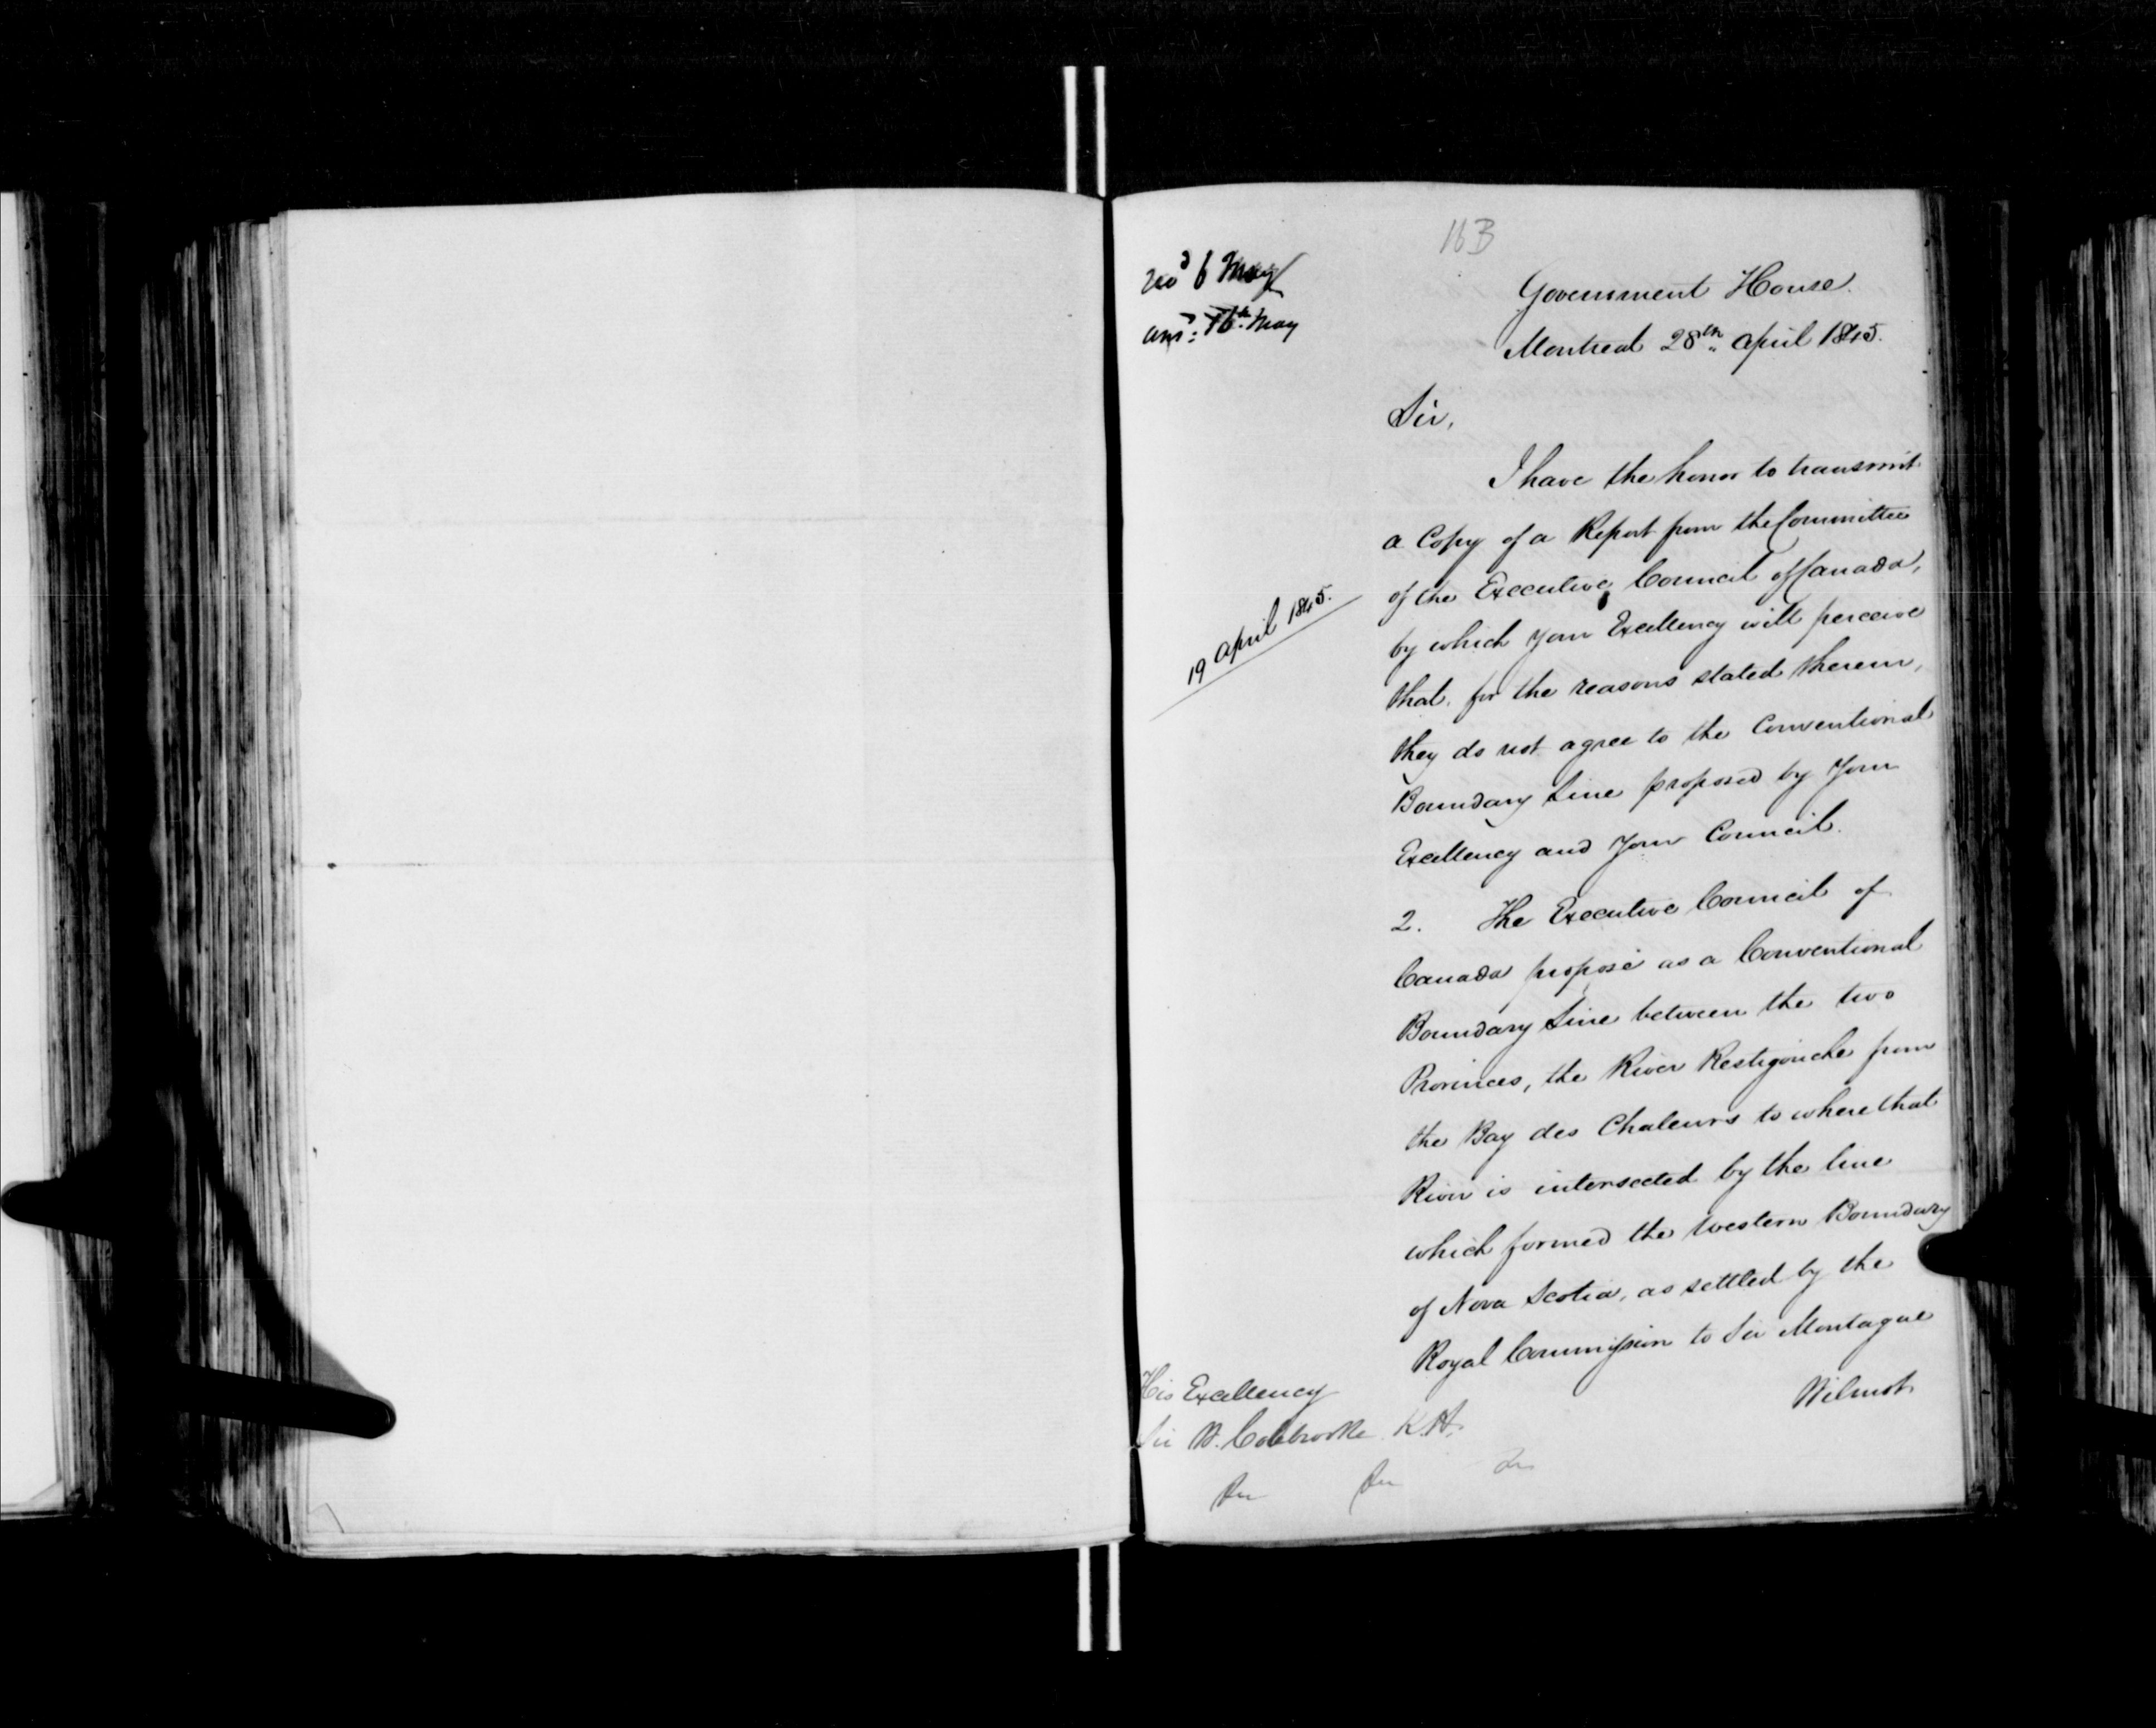 16B
Recd 6 May
Ansd 16th May
Government House.
Montreal 28th April 1845.
Sir,
I have the honor to transmit
a Copy of a Report from the Committee
19 April 1845.
of the Executive Council of Canada,
by which Your Excellency will perceive
that, for the reasons stated therein,
they do not agree to the Conventional
Boundary Line proposed by Your
Excellency and Your Council.
2. The Executive Council of
Canada propose as a Conventional
Boundary Line between the two
Provinces, the River Restigouche from
the Bay des Chaleurs to where that
River is intersected by the line
which formed the Western Boundary
of Nova Scotia, as settled by the
Royal Commission to Sir Montague
Wilmot
His Excellency
Sir W. Colebrooke K.H.